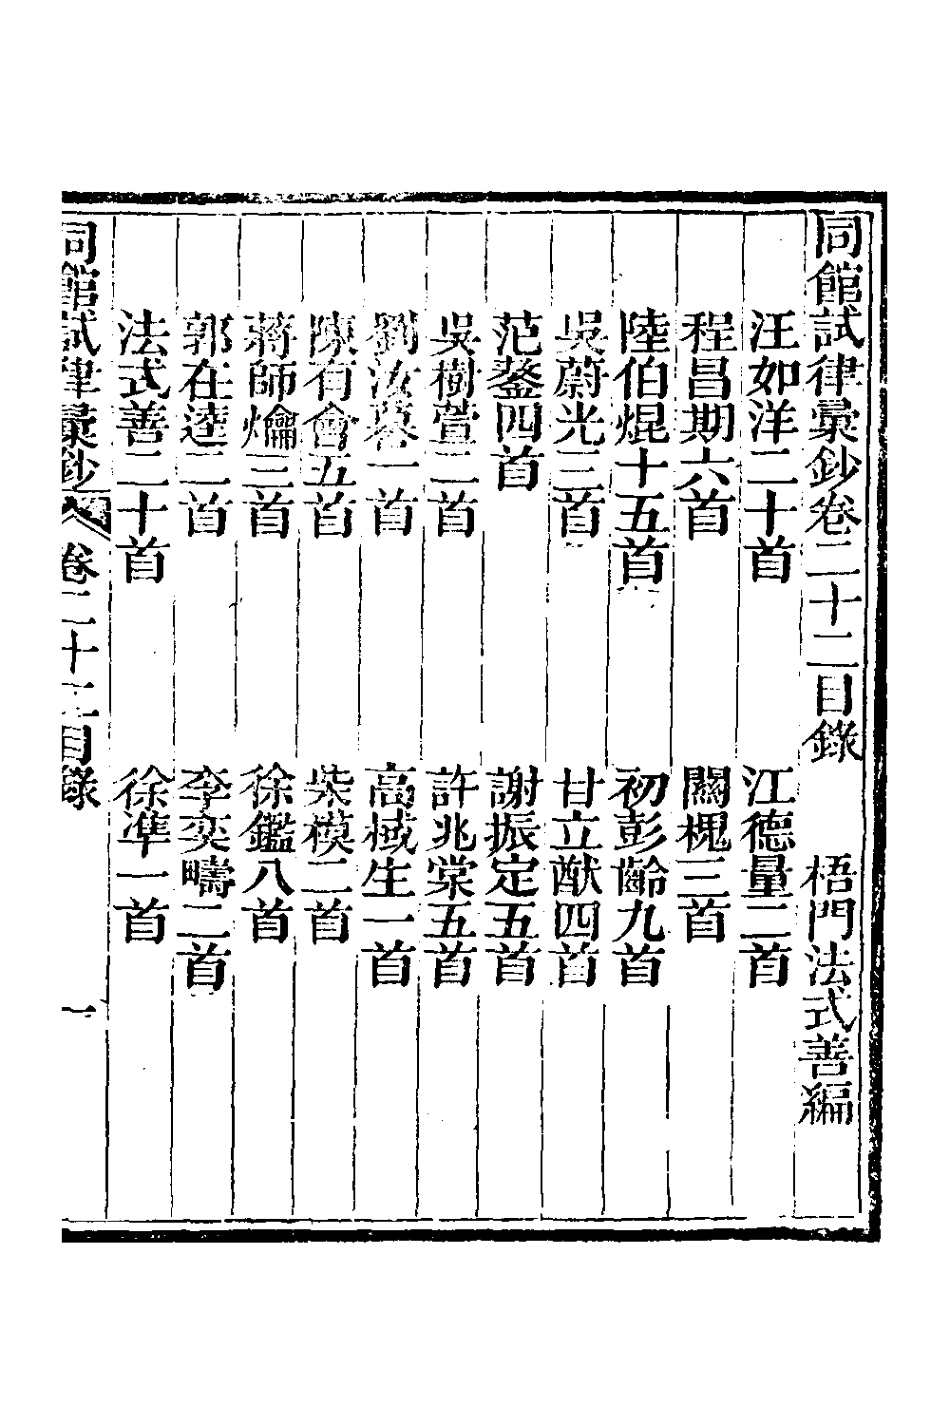 同館試律彙鈔卷二十二目錄　梧門法式善編
汪如洋二十首　江德量二首
程昌期六首　關槐三首
陸伯焜十五首　初彭齡九首
吳蔚光三首　甘立猷四首
范鏊四首　謝振定五首
吳樹萱二首　許兆棠五首
劉汝謩一首　高棫生一首
陳有會五首　柴模二首
蔣師爚三首　徐鑑八首
郭在逵二首　李奕疇二首
法式善二十首　徐準一首
同館試律彙鈔　卷二十二目錄　一